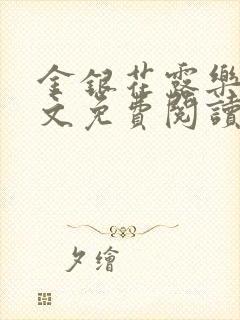 金銀花露樂
文免費閱讀
夕繪